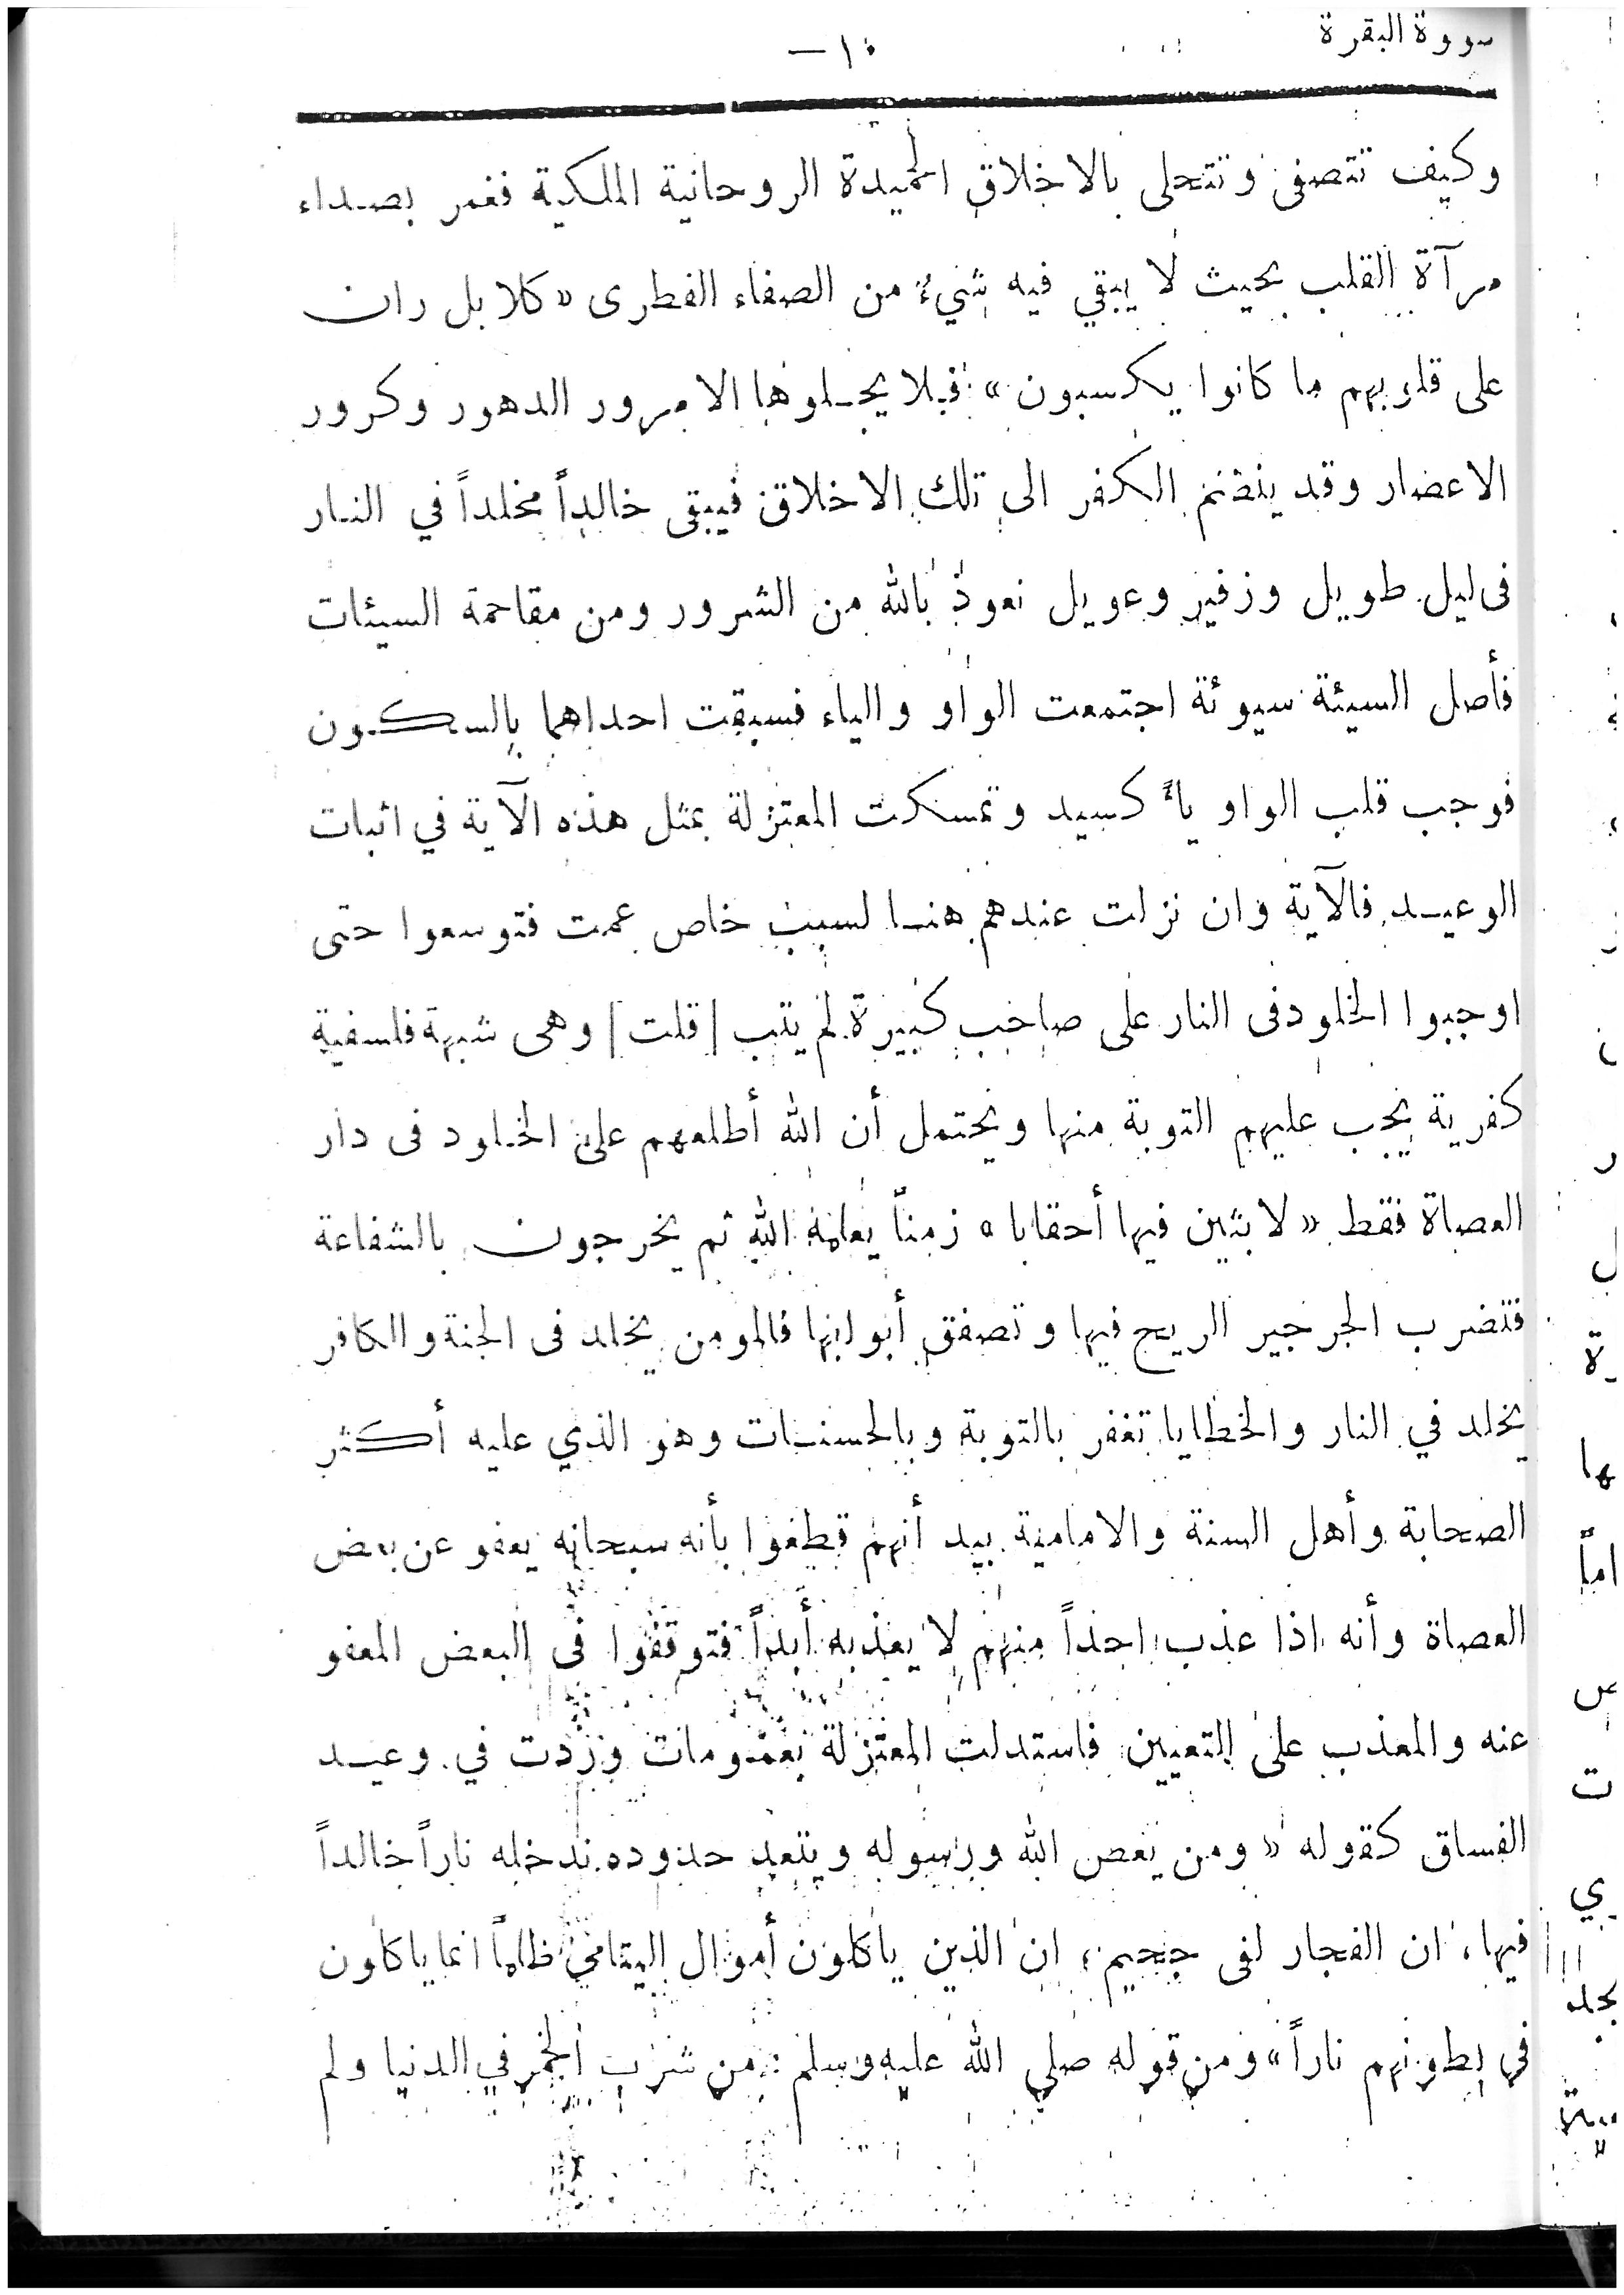 سورة البقرة
١٠ —
وكيف تتصفى وتتحلى بالاخلاق الحميدة الروحانية الملكية فغمر بصداء
مرآة القلب بحيث لا يبقي فيه شيء من الصفاء الفطرى «كلا بل ران
على قلوبهم ما كانوا يكسبون» فلا يجلوها الا مرور الدهور وكرور
الاعصار وقد ينضم الكفر الى تلك الاخلاق فيبقى خالداً مخلداً في النار
فى ليل طويل وزفير وعويل نعوذ بالله من الشرور ومن مقاحمة السيئات
فأصل السيئة سيوئة اجتمعت الواو والياء فسبقت احداهما بالسكون
فوجب قلب الواو ياءً كسيد وتمسكت المعتزلة بمثل هذه الآية في اثبات
الوعيد فالآية وان نزلت عندهم هنا لسبب خاص عمت فتوسعوا حتى
اوجبوا الخلود فى النار على صاحب كبيرة لم يتب [قلت] وهى شبهة فلسفية
كفرية يجب عليهم التوبة منها ويحتمل أن الله أطلعهم على الخلود فى دار
العصاة فقط «لابثين فيها أحقابا» زمناً يعلمه الله ثم يخرجون بالشفاعة
فتضرب الجرجير الريح فيها وتصفق أبوابها فالمومن يخلد فى الجنة والكافر
يخلد في النار والخطايا تغفر بالتوبة وبالحسنات وهو الذي عليه أكثر
الصحابة وأهل السنة والامامية بيد أنهم قطعوا بأنه سبحانه يعفو عن بعض
العصاة وأنه اذا عذب احداً منهم لا يعذبه أبداً فتوقفوا فى البعض المعفو
عنه والمعذب على التعيين فاستدلت المعتزلة بعمومات وردت في وعيد
الفساق كقوله «ومن يعص الله ورسوله ويتعد حدوده ندخله ناراً خالداً
فيها، ان الفجار لفى جحيم، ان الذين ياكلون أموال اليتامى ظلماً انما ياكلون
في بطونهم ناراً» ومن قوله صلى الله عليه وسلم: من شرب الخمر في الدنيا ولم